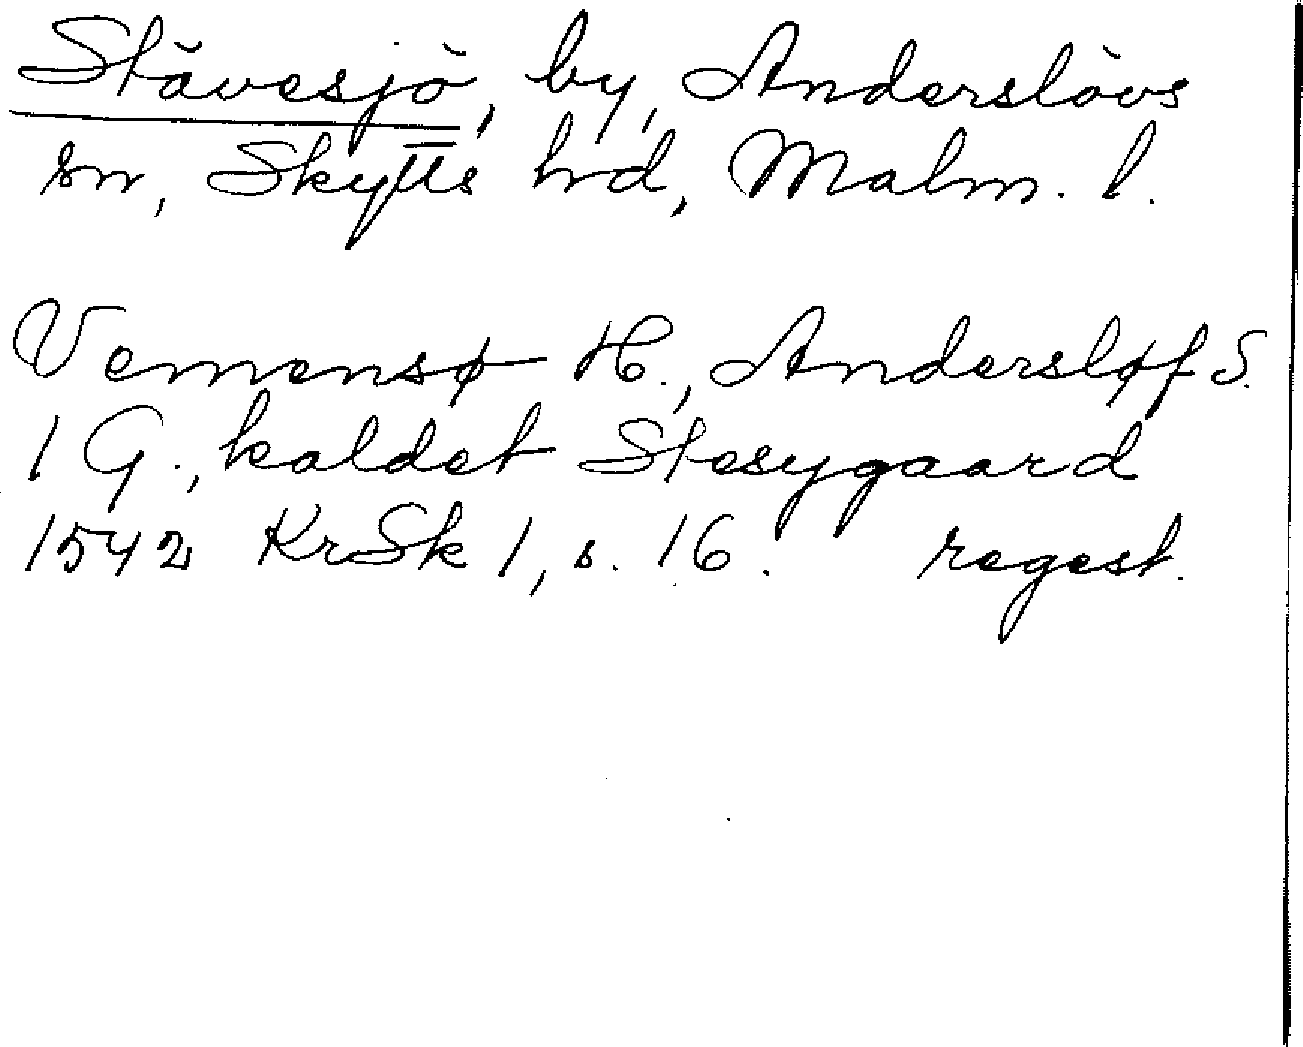 Stävesjö, by, Anderslövs
sn, Skytts hd, Malm. l.
Vemensø H., Andersløf S.
1 G., kaldet Stesygaard
1542 KrSk 1, s. 16. regest.